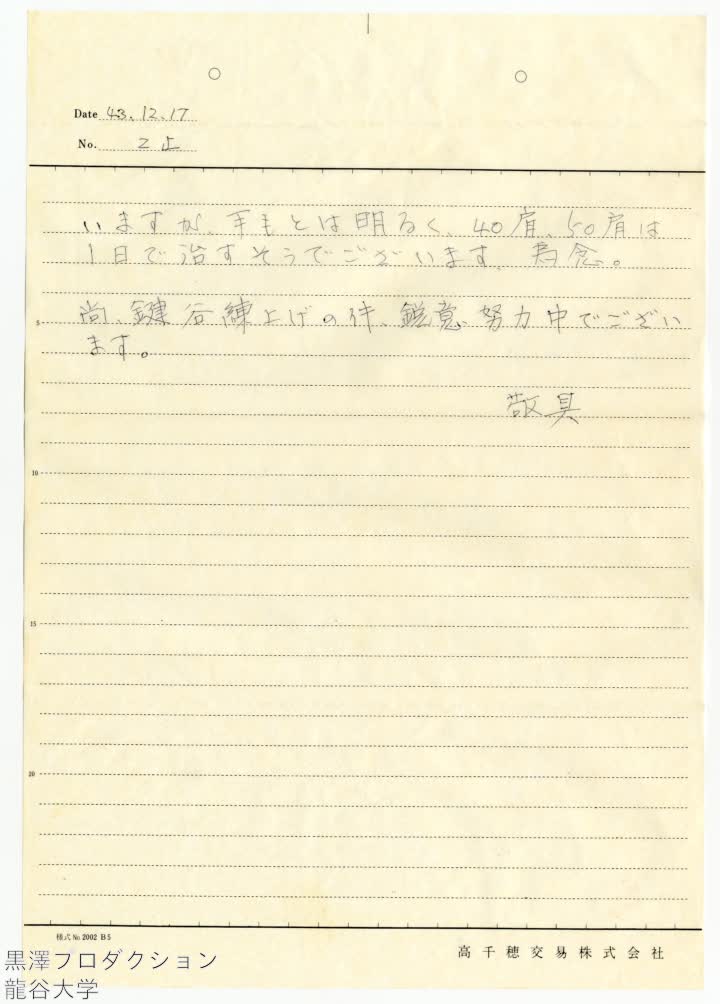 Date 43.12.17
No. 2止
いますが、手もとは明るく、40肩、50肩は
1日で治すそうでございます。為念。
尚、鍵谷練上げの件、鋭意努力中でござい
ます。
敬具
5
10
15
20
様式 No.2002 B5
高千穂交易株式会社
黒澤プロダクション
龍谷大学